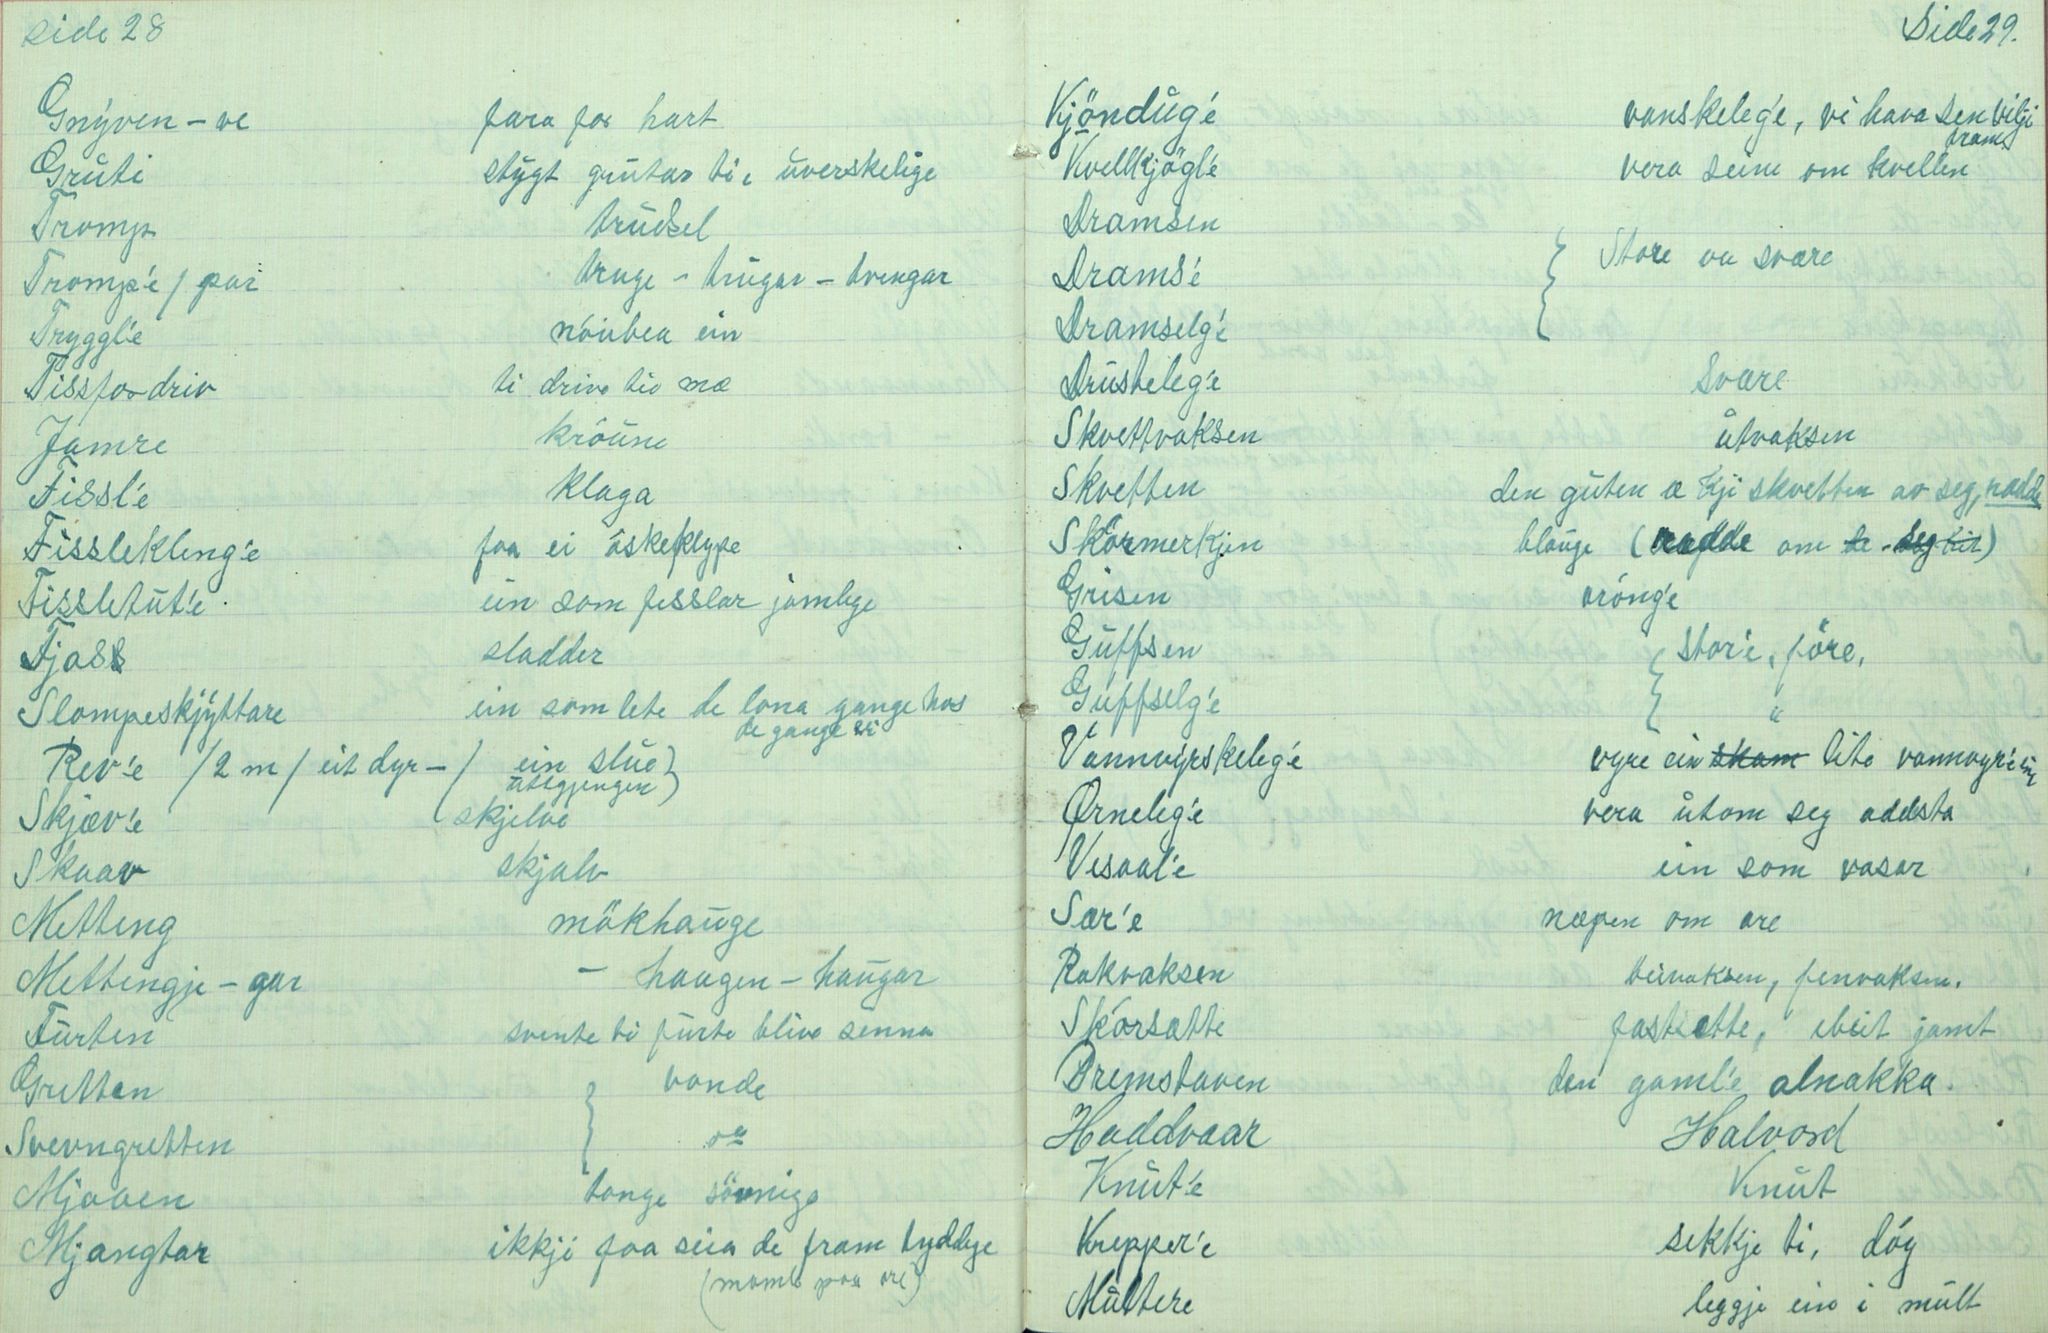 side 28
Gnýven - ve fara for hart
Gruti stýgt grutar ti, uverskelige
Tromp trudsel
Tromp'e / par truge - trugar - tvengar
Tryggl'e nóivbea ein
Tissfordriv ti driva tio mæ
Jamre króune
Fissl'e klaga
Fisslekleng'e faa ei öskeklype
Fissletut'e ein som fesslar jamlege
Fjass sladder
Slompeskjýttare ein som lete de lona gange hos
de gange vi
Rev'e / 2 m / eit dyr - / ein slue )
utsgjengen )
Skjæv'e skjelve
Skaav skjalv
Metting mökhauge
Mettingje - gar - haugen - haugar
Furten svente ti furte blive senna
Gretten } vonde
Svevngretten
Mjaaen tonge sövnige
Mjangtar ikkji faa seia de fram tyddege
(momle paa ore)
Side 29.
Kjöndug'e vanskeleg'e, vi hava sen vilji
fram
Kvellkjögl'e vera seine om kvellen
Dramsen
Drams'e } Store va svære
Dramselg'e
Drusteleg'e Svære
Skvettvaksen utvaksen
Skvetten den guten æ kji skvetten av seg, radde
Skörmerkjen blauge (radde om de seg til)
Grisen vróng'e
Guffsen { stor'e, före,
Guffselg'e "
Vannvyrskeleg'e vyre ein skam lite vannvyr'e
Ørneleg'e vera utom seg addsta
Vesaal'e ein som vasar
Sær'e næpen om ore
Rakvaksen beivaksen, fenvaksen.
Skorsatte fastsette, ebeit jamt
Bremstaven den gaml'e alnakka.
Haddvaar Halvord
Knut'e Knut
Krepper'e sekkje ti, dóg
Multere leggje ein i mult